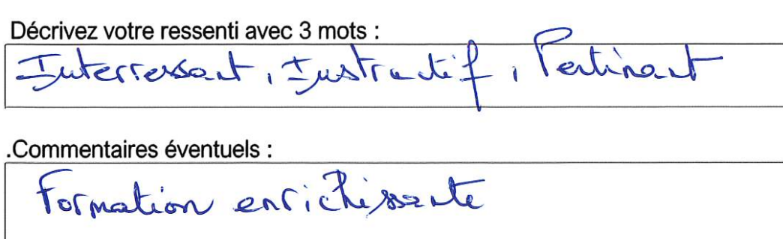 Décrivez votre ressenti avec 3 mots :
Interressant, Instructif, Pertinant
.Commentaires éventuels :
Formation enrichissante